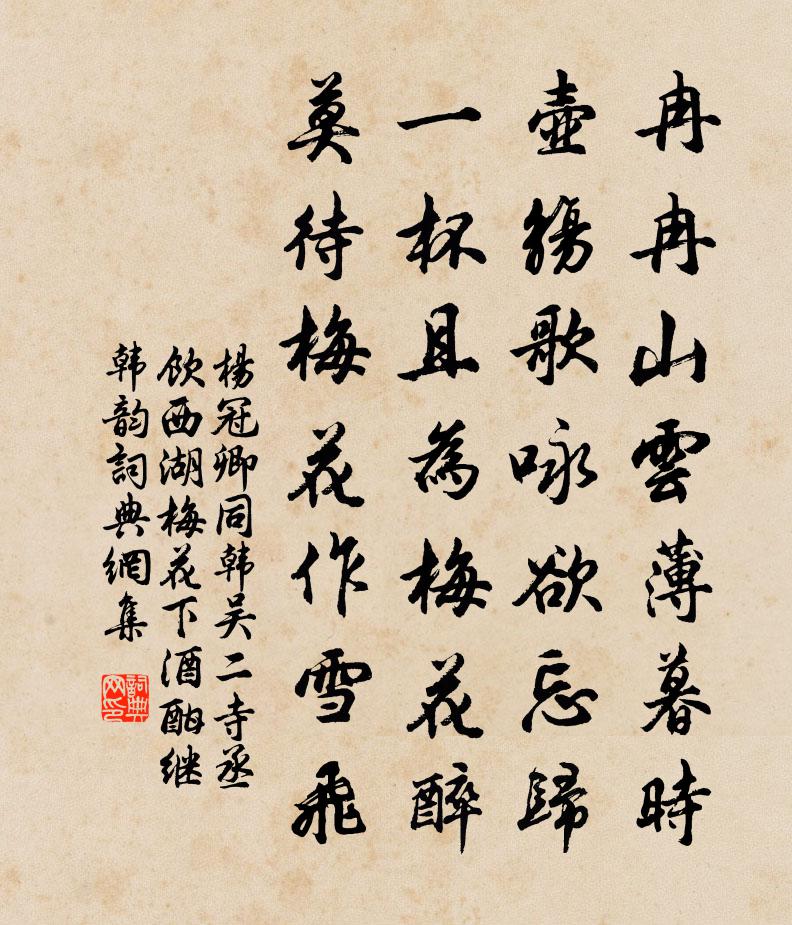 冉冉山雲薄暮時
壺觴歌咏欲忘歸
一杯且為梅花醉
莫待梅花作雪飛
楊冠卿同韩吴二寺丞
飲西湖梅花下酒酣继
韩韵詞典網集
詞典
网印